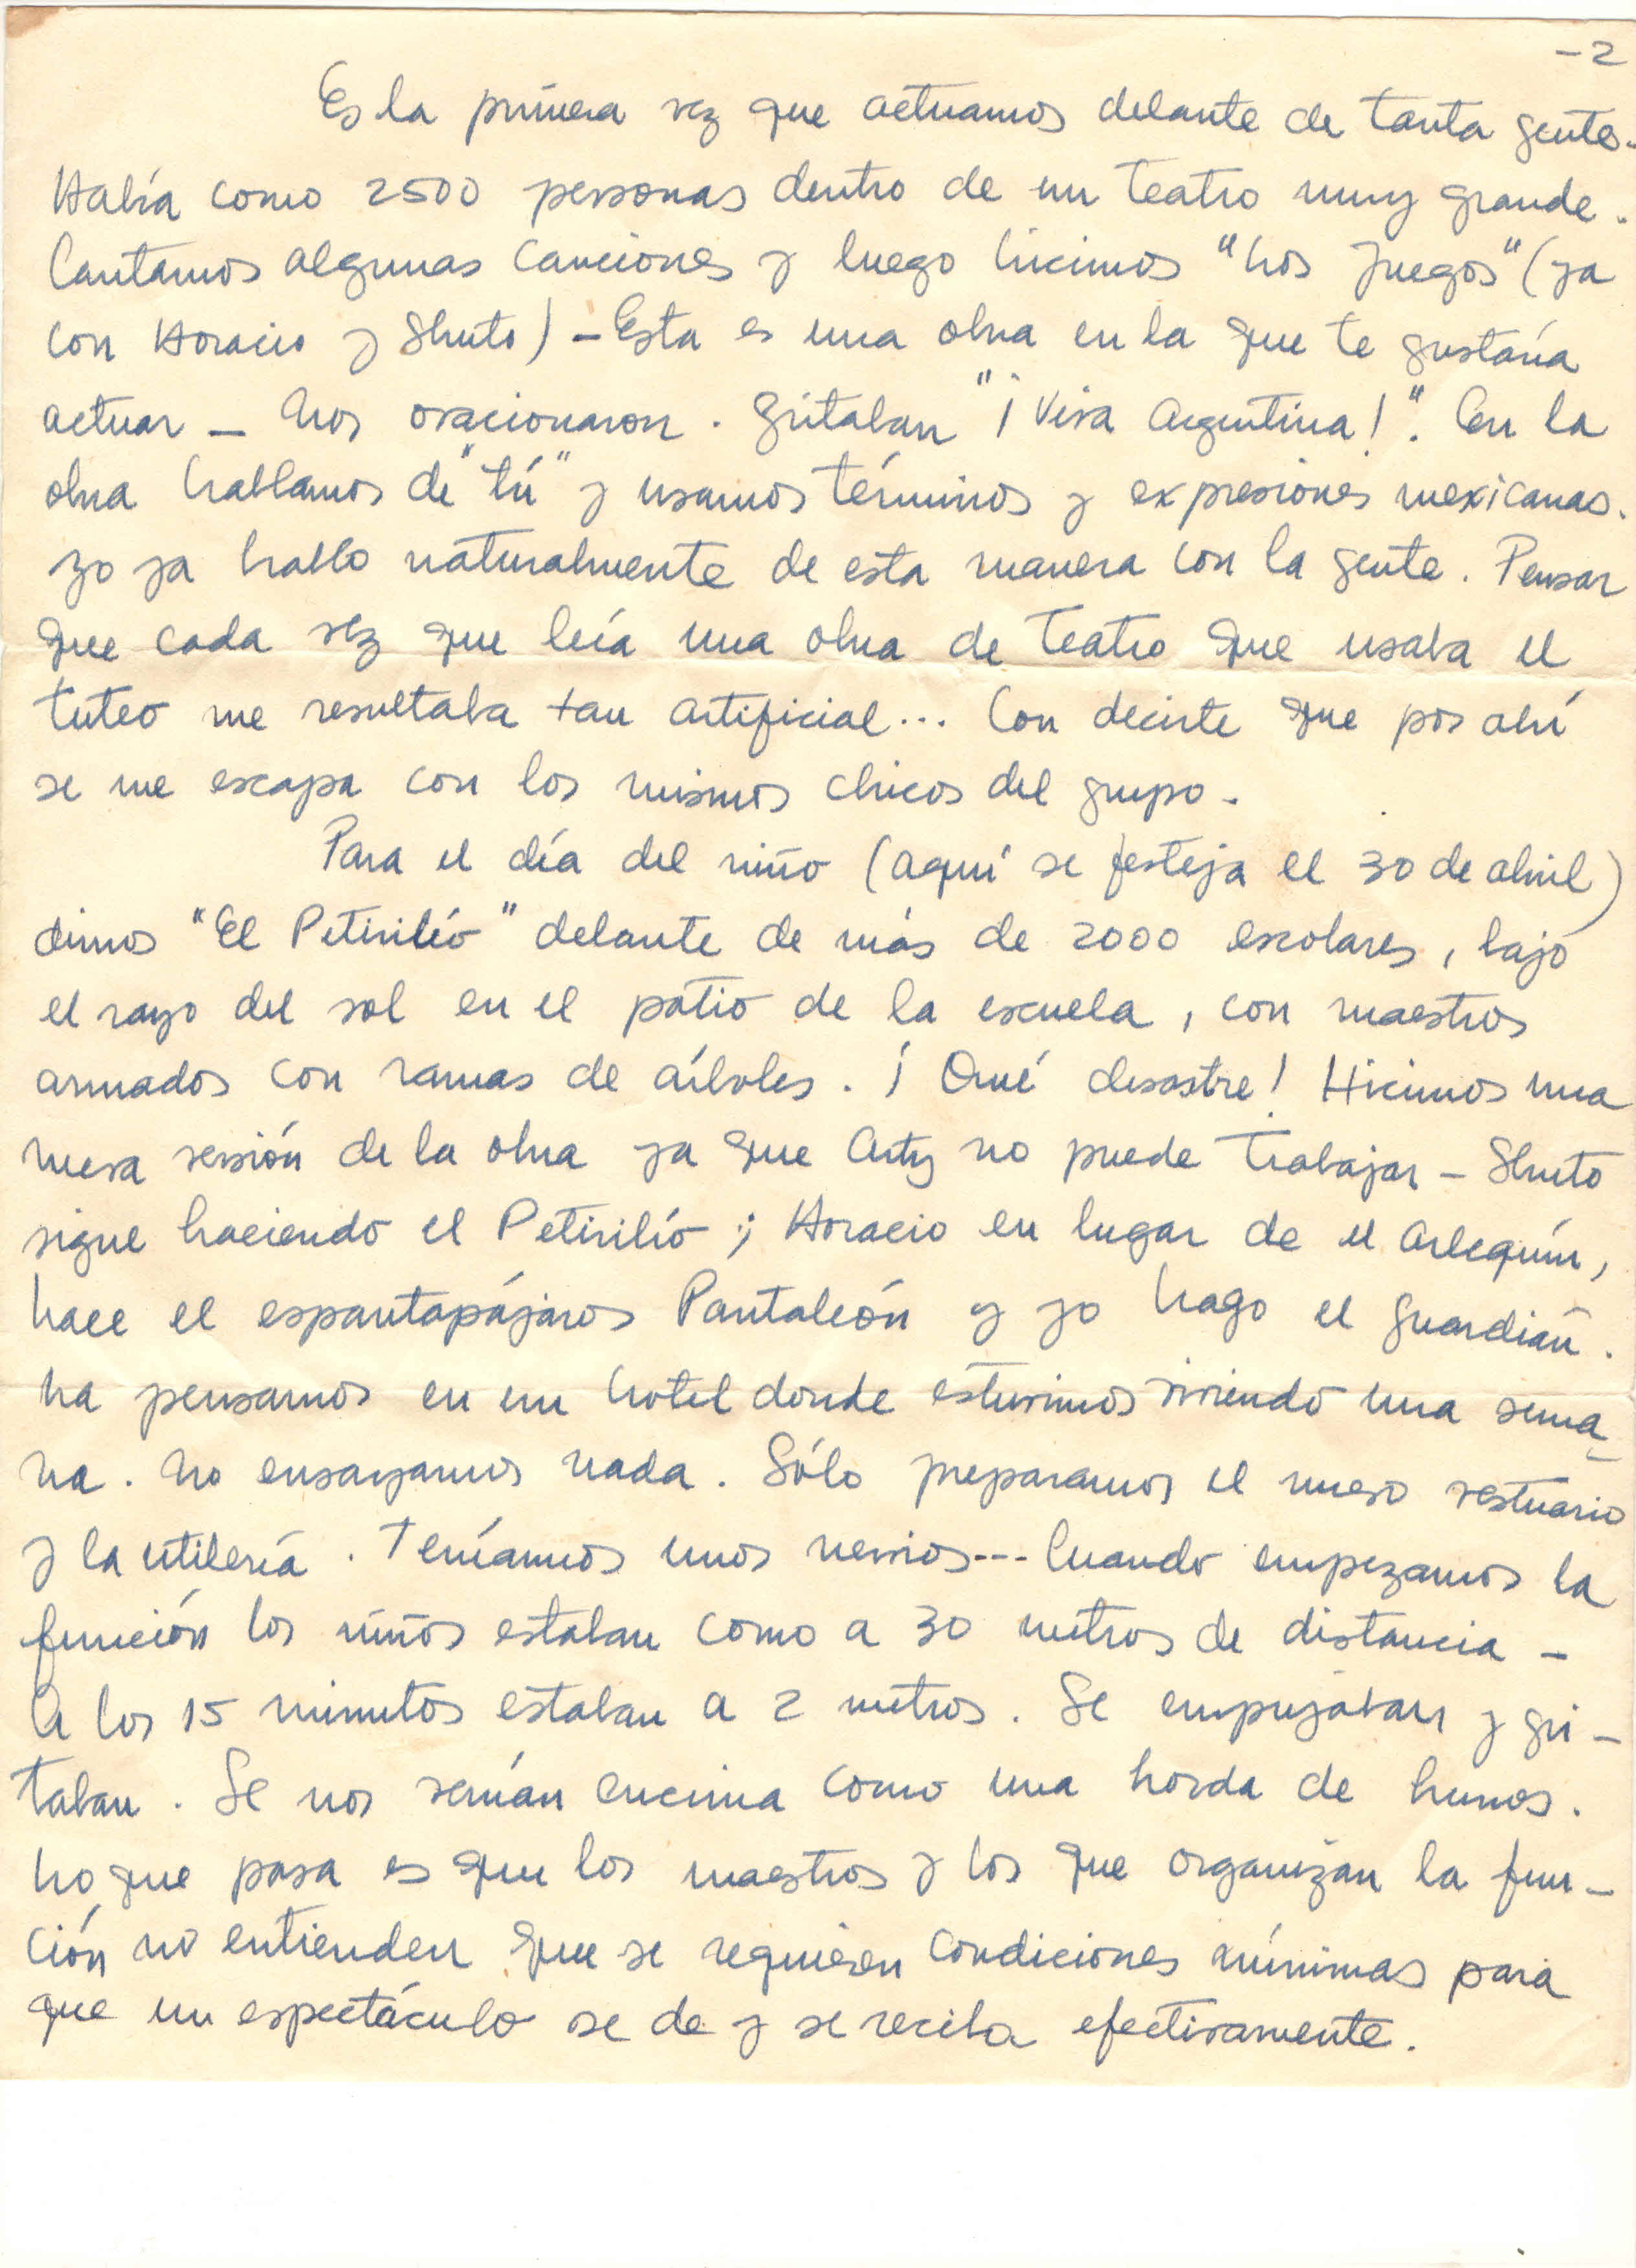 -2
Es la primera vez que actuamos delante de tanta gente.
Había como 2500 personas dentro de un teatro muy grande.
Cantamos algunas canciones y luego hicimos "Los Juegos" (ya
con Horacio y Shuto) - Esta es una obra en la que te gustaría
actuar - Nos ovacionaron. Gritaban "¡Viva Argentina!". En la
obra hablamos de "tú" y usamos términos y expresiones mexicanas.
Yo ya hablo naturalmente de esta manera con la gente. Pensar
que cada vez que leía una obra de teatro que usaba el
tuteo me resultaba tan artificial... Con decirte que por ahí
se me escapa con los mismos chicos del grupo.
Para el día del niño (aquí se festeja el 30 de abril)
dimos "El Petirilío" delante de más de 2000 escolares, bajo
el rayo del sol en el patio de la escuela, con maestros
armados con ramas de árboles. ¡Qué desastre! Hicimos una
nueva versión de la obra ya que Arty no puede trabajar - Shuto
sigue haciendo el Petirilío; Horacio en lugar de el Arlequín,
hace el espantapájaros Pantaleón y yo hago el guardián.
La pensamos en un hotel donde estuvimos viviendo una sema-
na. No ensayamos nada. Sólo preparamos el nuevo vestuario
y la utilería. Teníamos unos nervios--- Cuando empezamos la
función los niños estaban como a 30 metros de distancia -
A los 15 minutos estaban a 2 metros. Se empujaban y gri-
taban. Se nos venían encima como una horda de hunos.
Lo que pasa es que los maestros y los que organizan la fun-
ción no entienden que se requieren condiciones mínimas para
que un espectáculo se de y se reciba efectivamente.